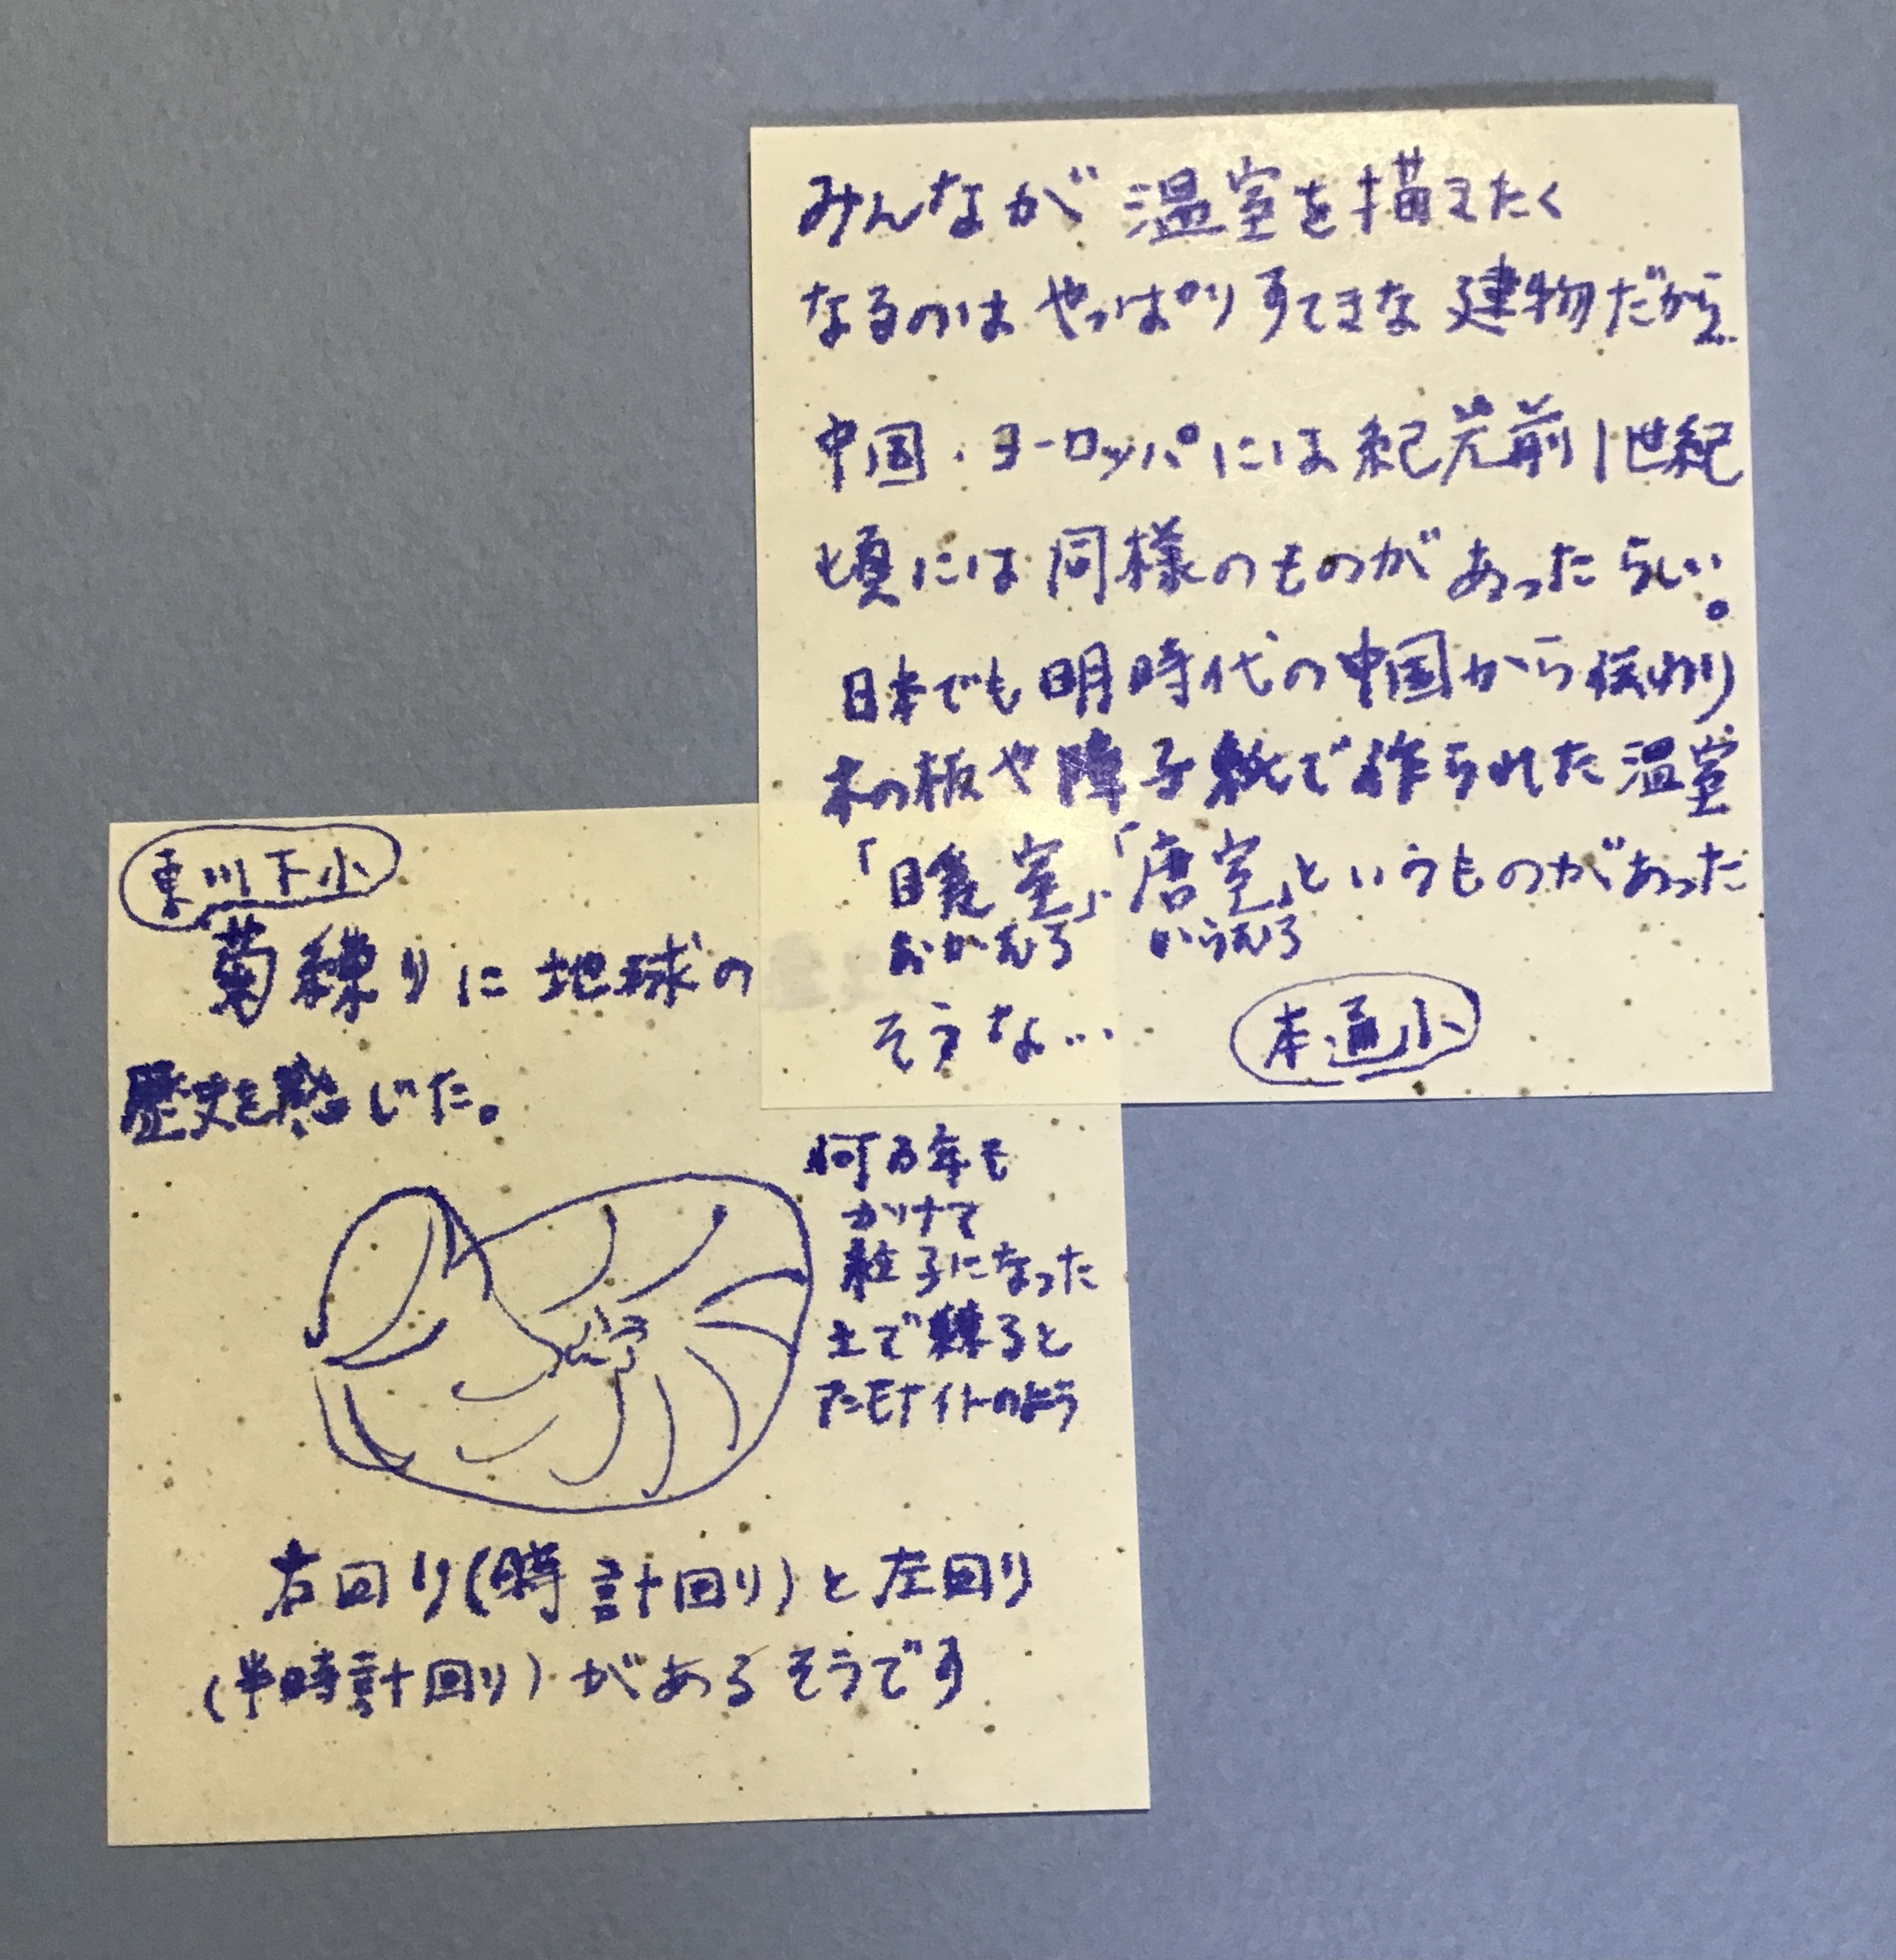 みんなが温室を描きたく
なるのはやっぱりすてきな建物だから
中国・ヨーロッパには紀元前1世紀
頃には同様のものがあったらしい。
日本でも明時代の中国から伝わり
木の板や障子紙で作られた温室
「暖室」「唐室」というものがあった
おかむろ からむろ
そうな…
本通小
東川下小
菊練りに地球の
歴史を感じた。
何万年も
かけて
粒子になった
土で練ると
アンモナイトのよう
右回り(時計回り)と左回り
(半時計回り)があるそうです